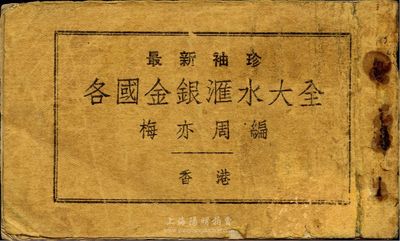 最新袖珍
各國金銀滙水大全
梅亦周編
香港
上海陽明拍賣